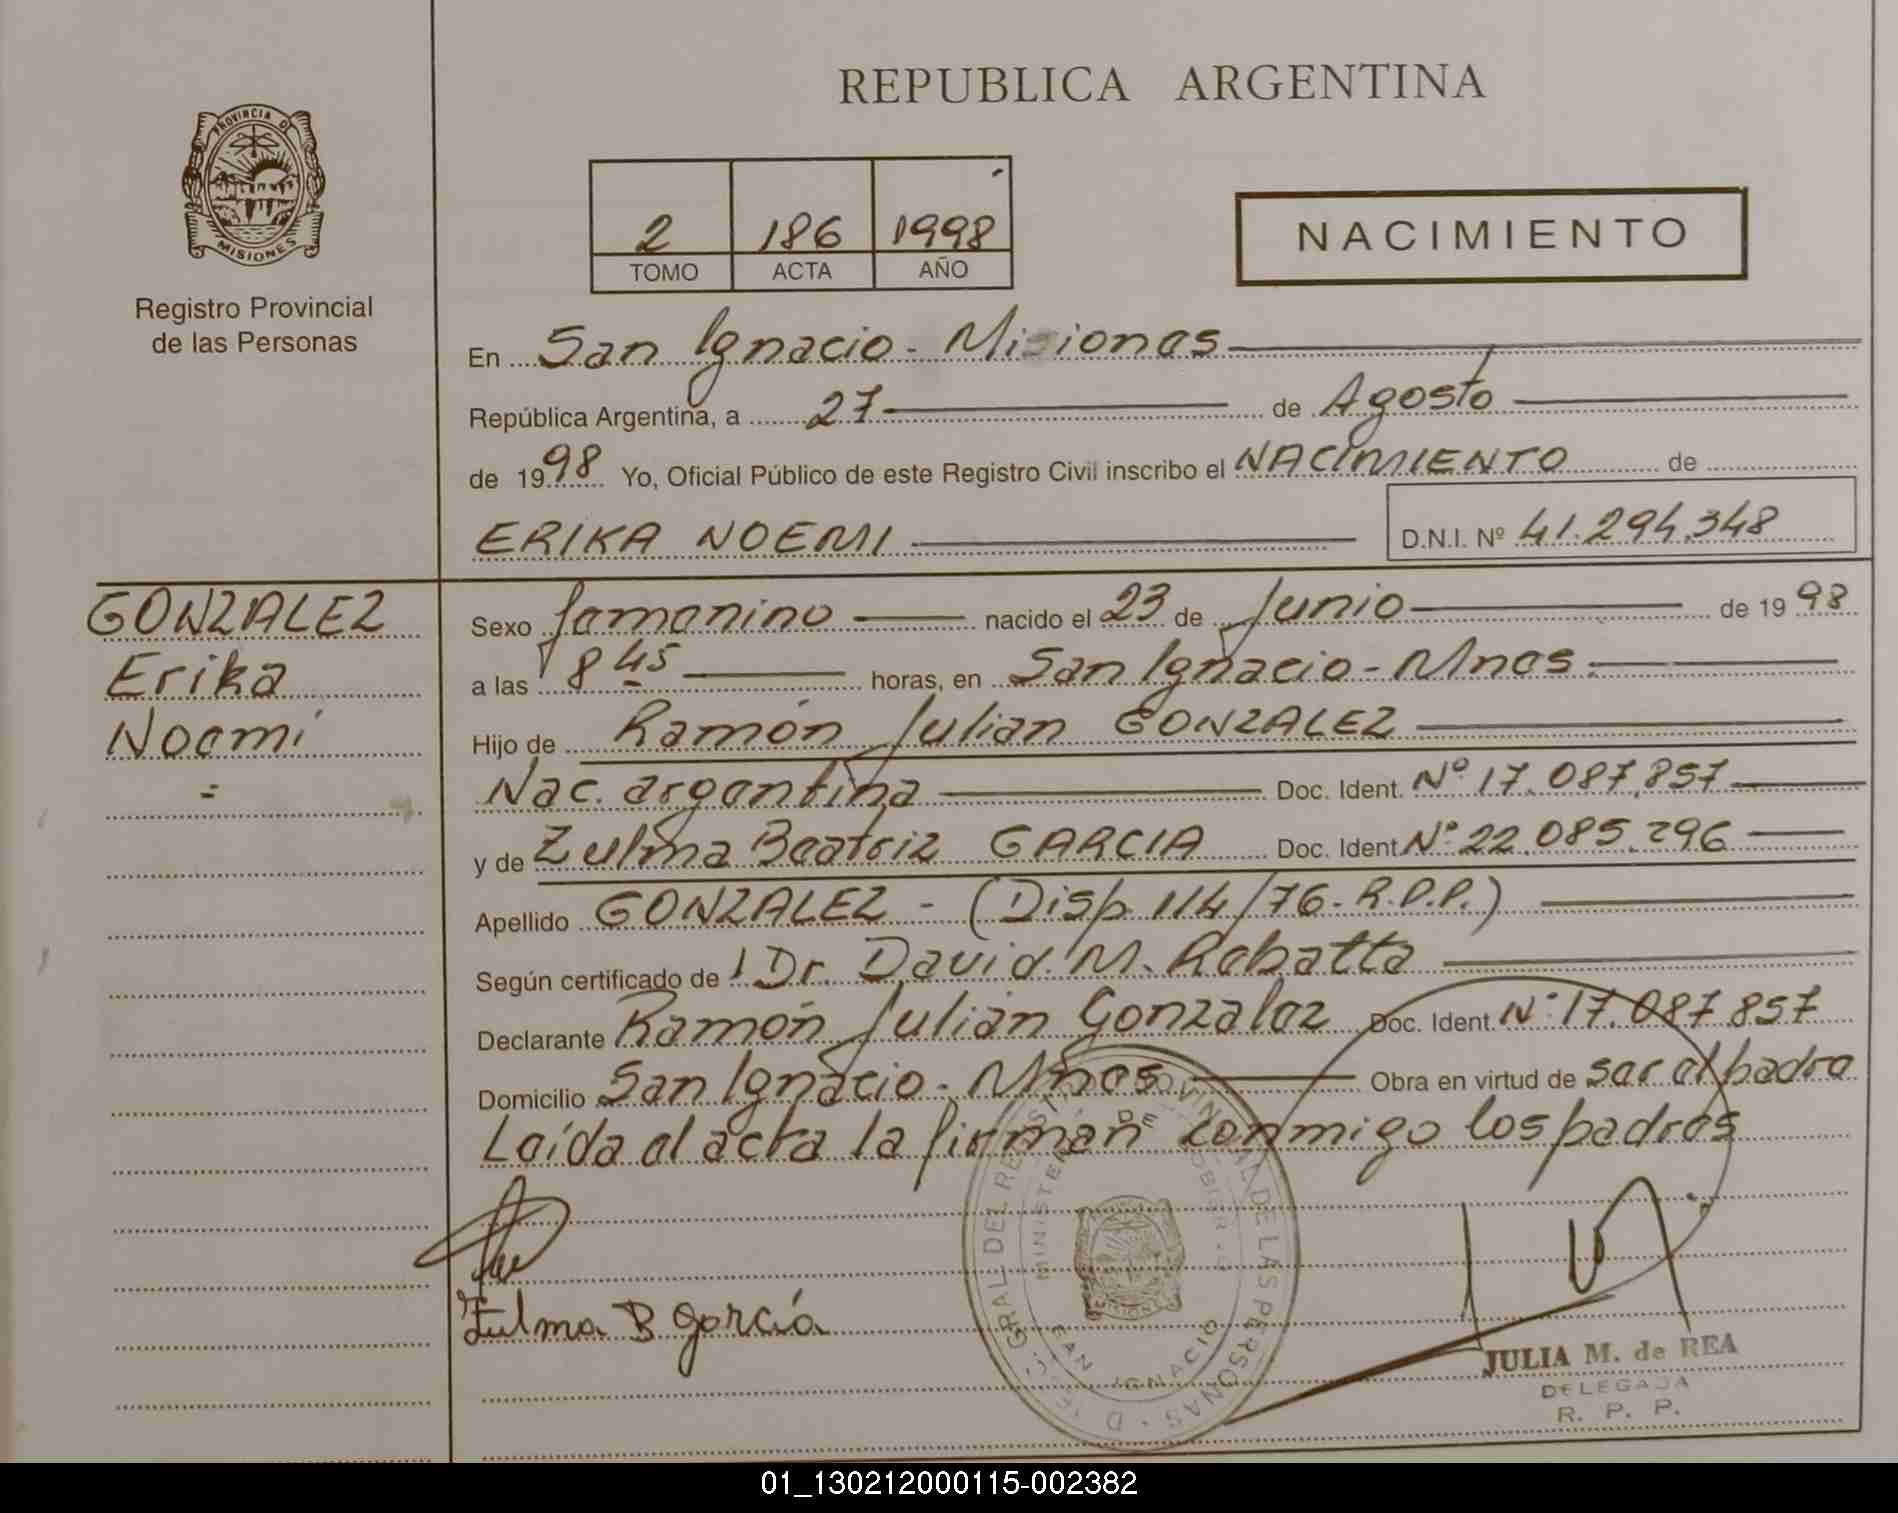 REPUBLICA ARGENTINA
PROVINCIA DE
MISIONES
Registro Provincial
de las Personas
2 186 1998
TOMO ACTA AÑO
NACIMIENTO
En San Ignacio - Misiones
República Argentina, a 27 de Agosto
de 1998 Yo, Oficial Público de este Registro Civil inscribo el NACIMIENTO de
ERIKA NOEMI D.N.I. Nº 41.294.348
GONZALEZ
Erika
Noemi
=
Sexo femenino nacido el 23 de Junio de 1998
a las 8 45 horas, en San Ignacio - Mnes.
Hijo de Ramón Julian GONZALEZ
Nac. argentina Doc. Ident. Nº 17.087.857
y de Zulma Beatriz GARCIA Doc. Ident Nº 22.085.296
Apellido GONZALEZ - (Disp. 114/76 - R.P.P.)
Según certificado de Dr. David M. Rebatta
Declarante Ramón Julián Gonzalez Doc. Ident. Nº 17.087.857
Domicilio San Ignacio - Mnes Obra en virtud de ser el padre
Leída el acta la firman conmigo los padres
Zulma B Garcia
GRAL DEL REGISTRO PROVINCIAL DE LAS PERSONAS
SAN IGNACIO
JULIA M. de REA
DELEGADA
R. P. P.
01_130212000115-002382